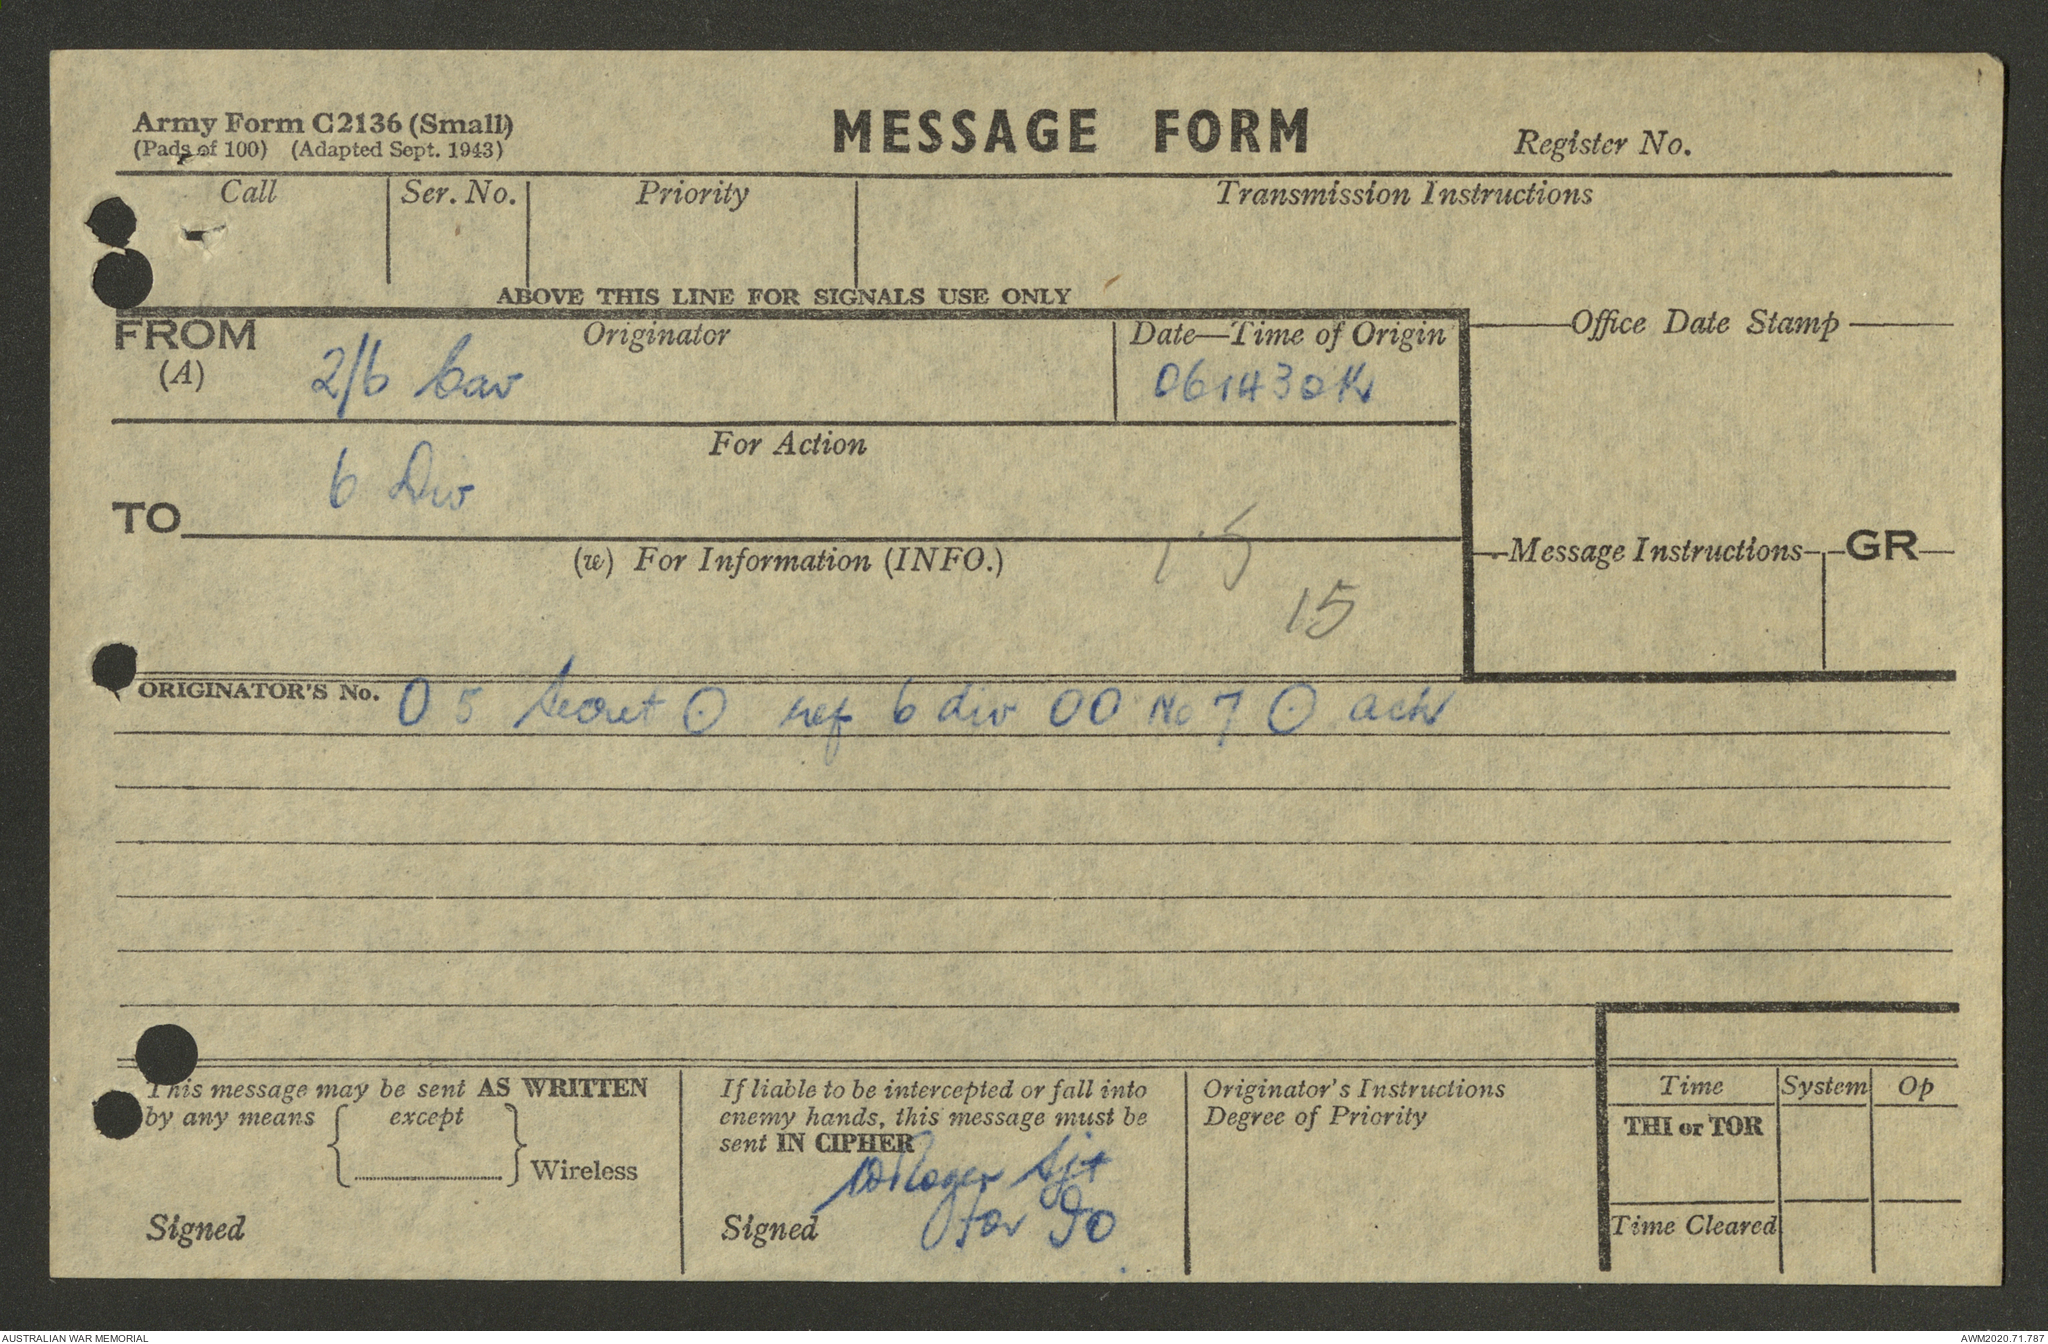 Army Form C2136 (Small)
(Pads of 100) (Adapted Sept. 1943)
MESSAGE FORM
Register No.
Call
Ser. No.
Priority
Transmission Instructions
ABOVE THIS LINE FOR SIGNALS USE ONLY
FROM
(A)
Originator
2/6 Cav
Date—Time of Origin
061430K
Office Date Stamp
For Action
6 Div
TO
(w) For Information (INFO.)
15
15
Message Instructions
GR
ORIGINATOR'S No. O 5 Secret ⊙ ref 6 div OO No 7 ⊙ ack
This message may be sent AS WRITTEN
by any means except
Wireless
Signed
If liable to be intercepted or fall into
enemy hands, this message must be
sent IN CIPHER
Roger Sjt
Signed for IO
Originator's Instructions
Degree of Priority
Time System Op
THI or TOR
Time Cleared
AUSTRALIAN WAR MEMORIAL
AWM2020.71.787